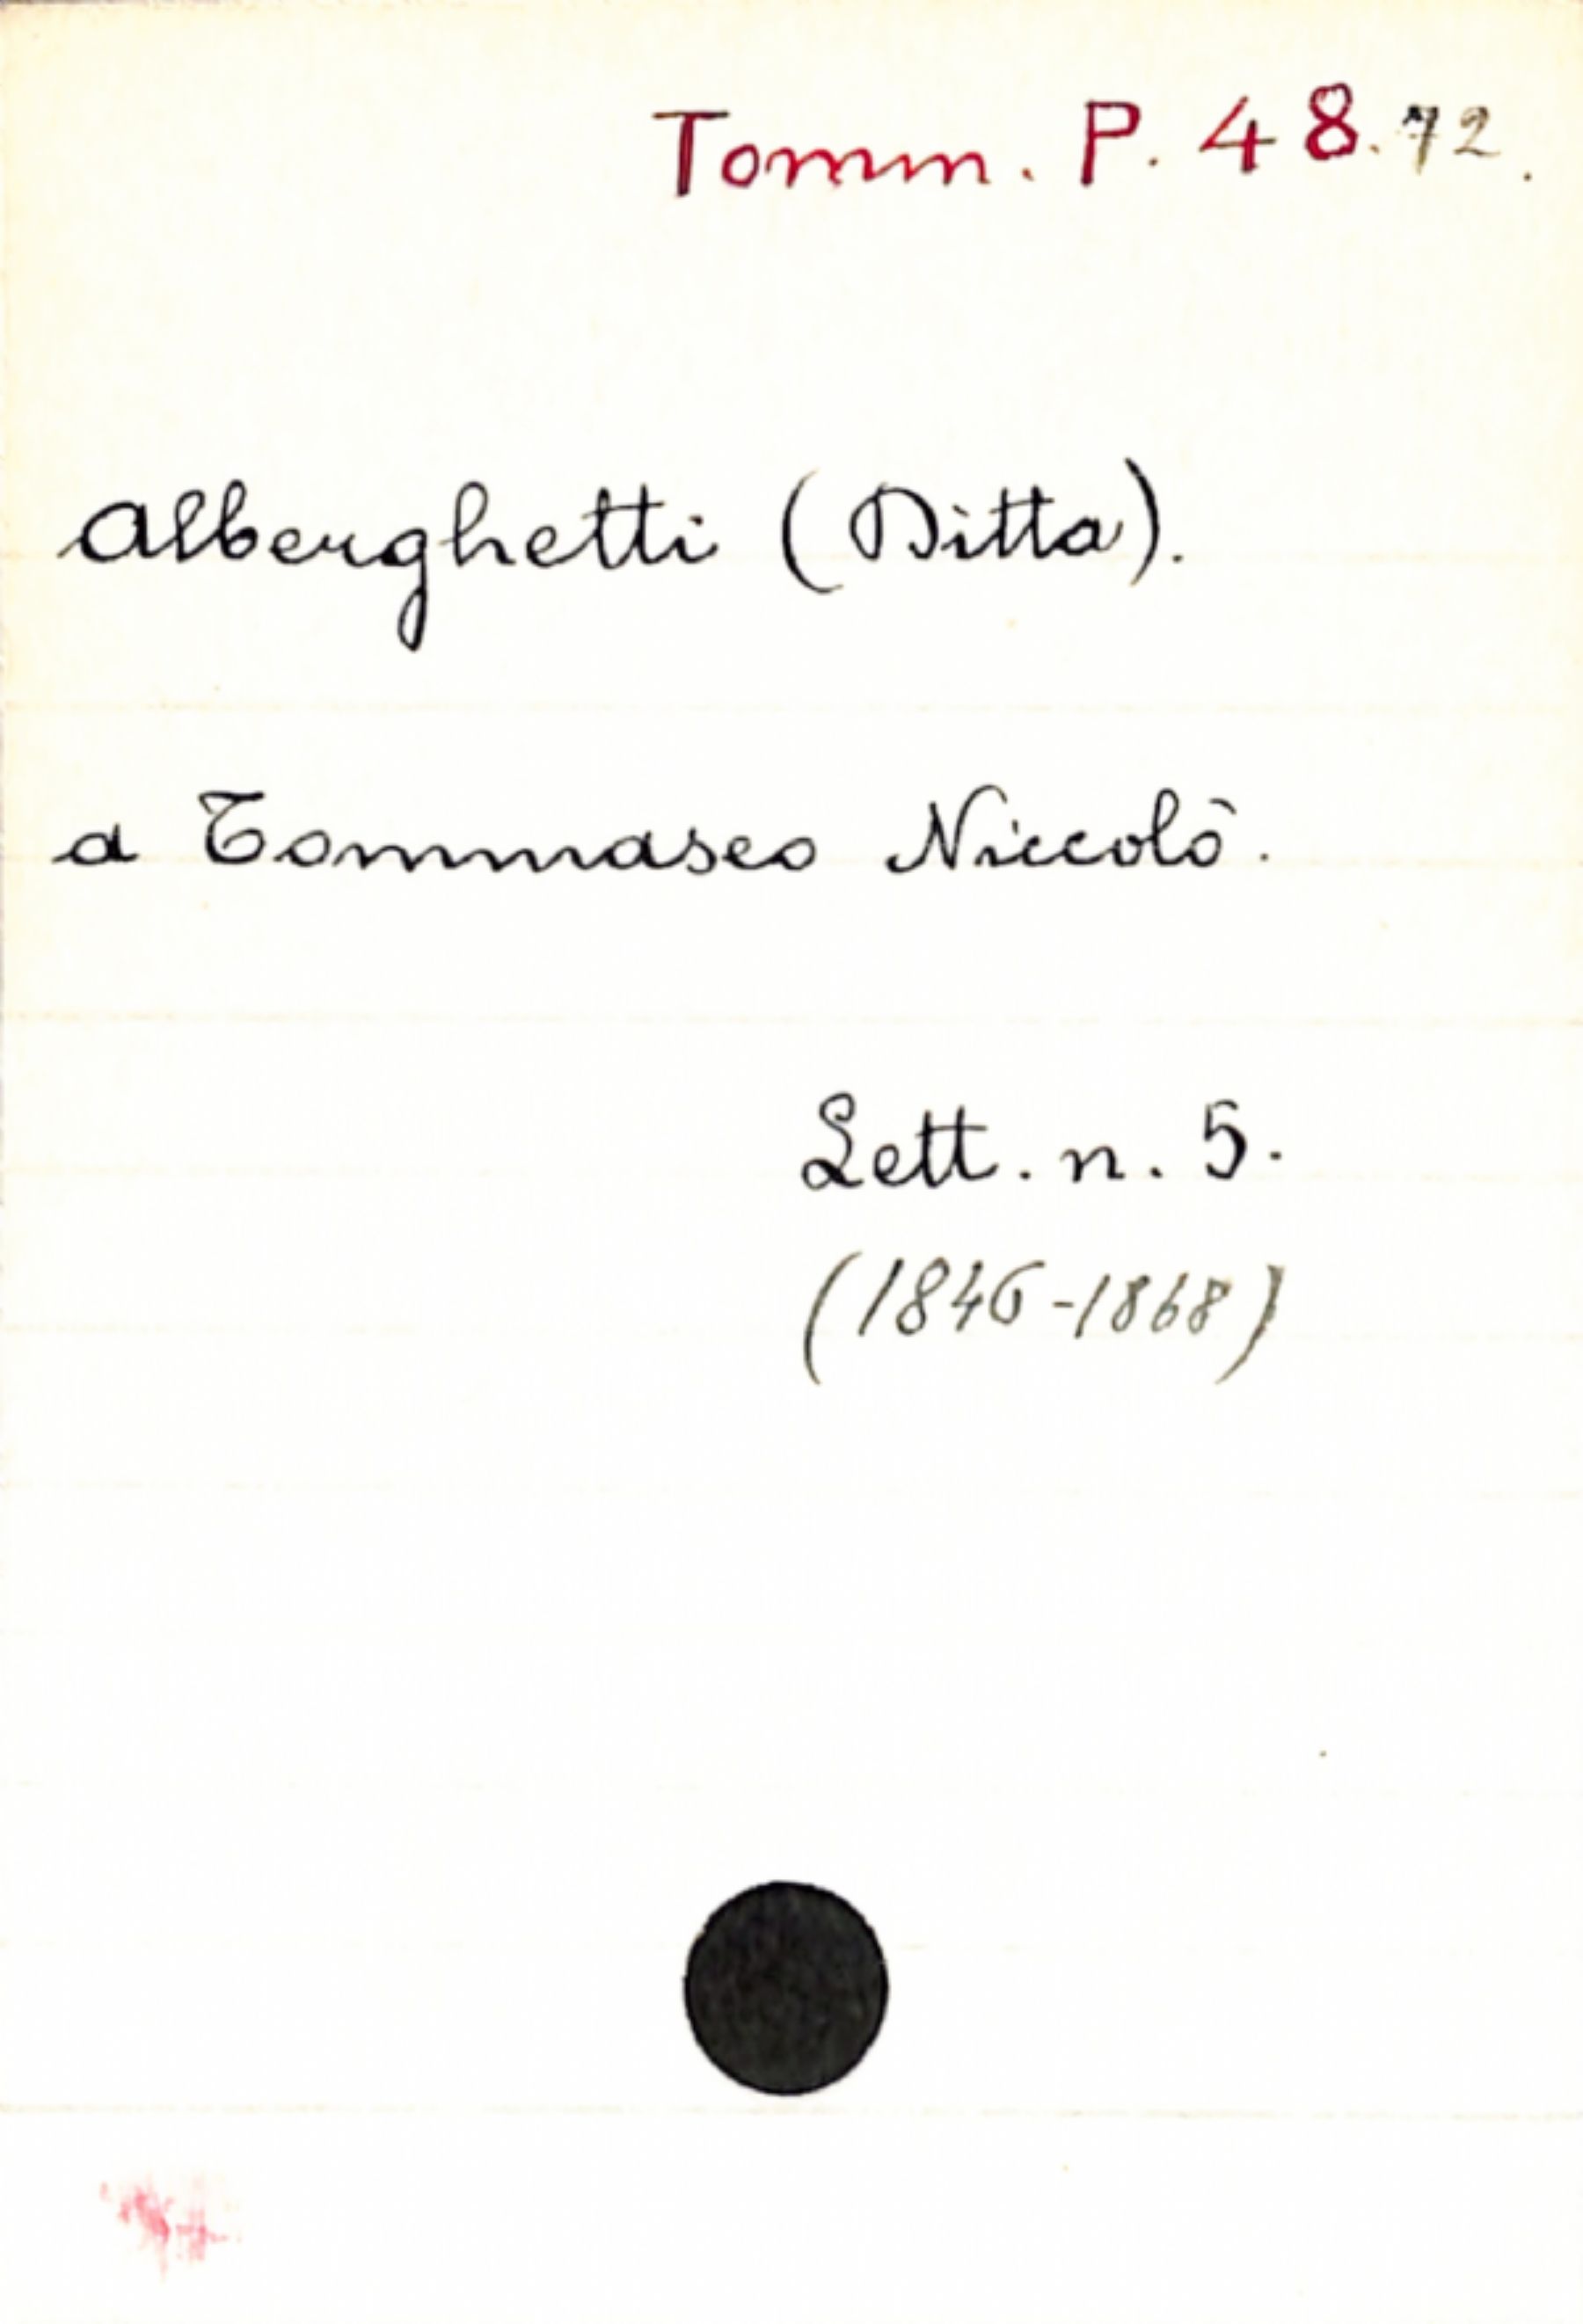 Tomm. P. 48.72.
Alberghetti (Ditta).
a Tommaseo Niccolò.
Lett. n. 5.
(1846-1868)